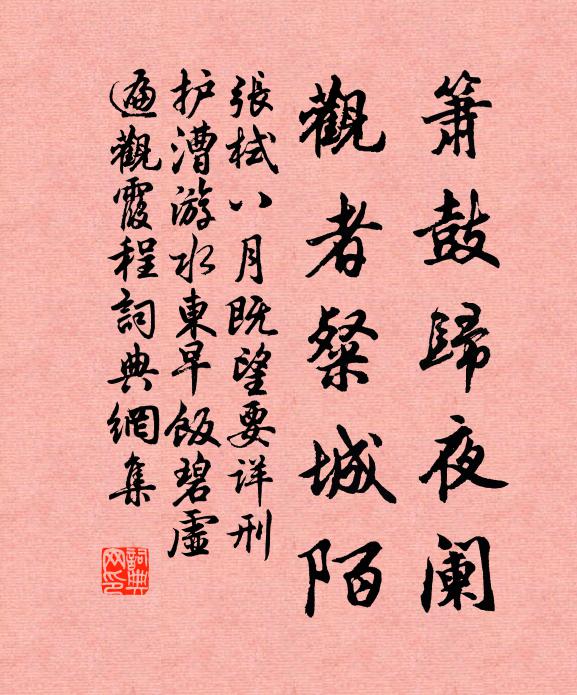 簫鼓歸夜阑
觀者粲城陌
張栻八月既望要详刑
护漕游水東早飯碧虚
遍觀霞程詞典網集
詞典网印